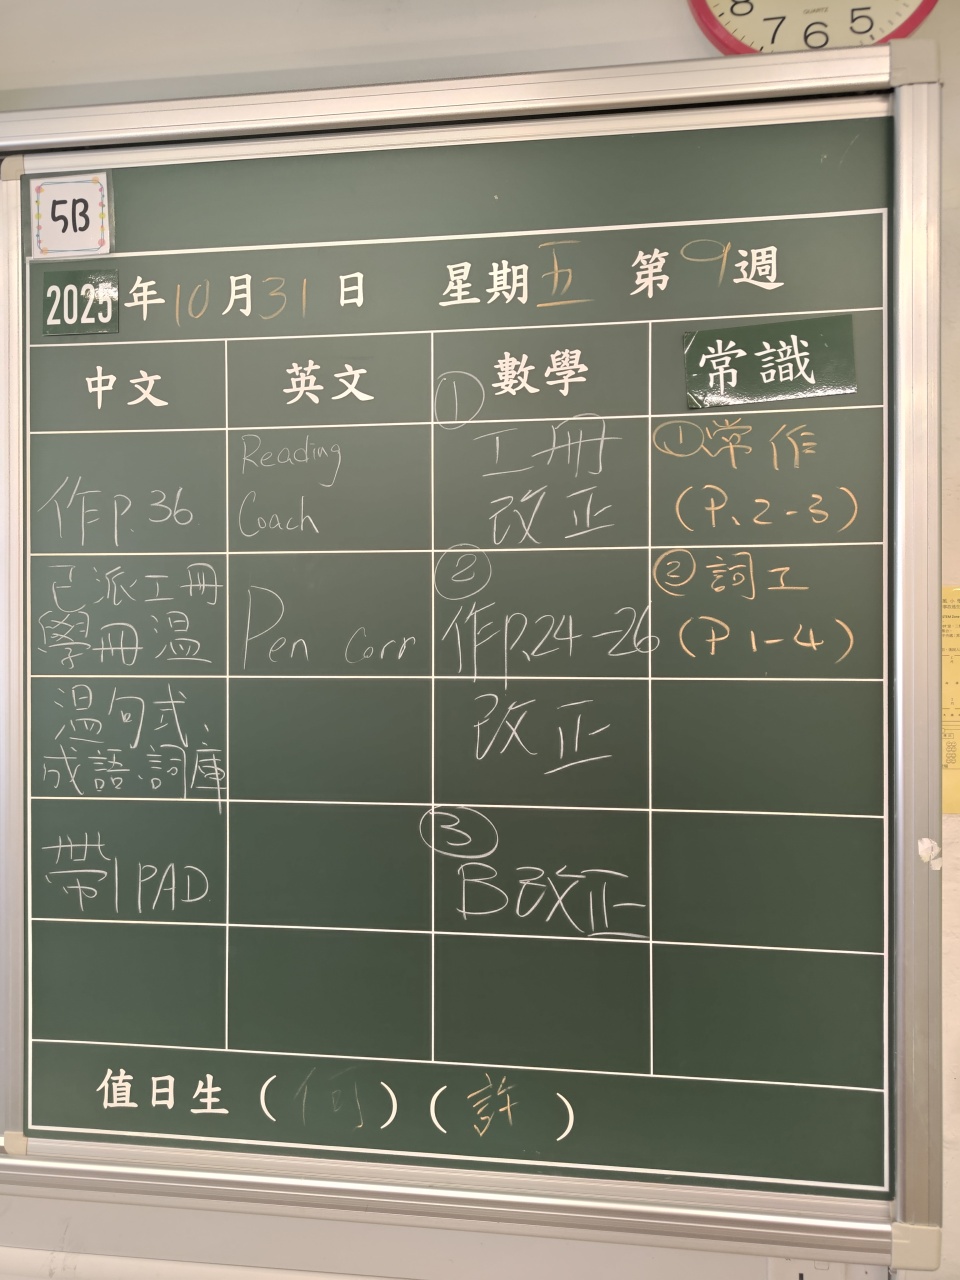 8 7 6 5
QUARTZ
5B
2025年10月31日 星期五 第9週
中文 英文 數學 常識
作P.36
已派工冊
學冊溫
溫句式、
成語、詞庫
帶IPAD
Reading
Coach
Pen Corr
①
工冊
改正
②
作P.24-26
改正
③
B改正
①常作
(P.2-3)
②詞工
(P1-4)
值日生(何)(許)